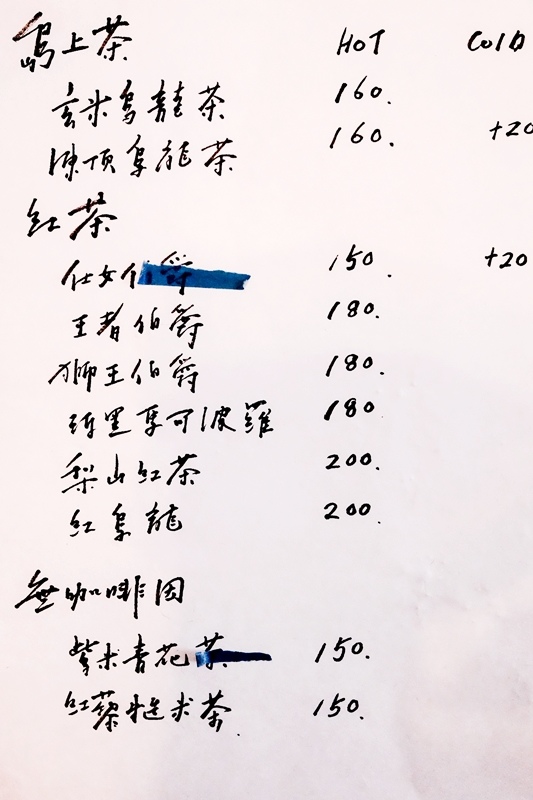 島上茶 HOT COLD
玄米烏龍茶 160.
凍頂烏龍茶 160. +20
紅茶
仕女伯爵 150. +20
王者伯爵 180.
獅王伯爵 180.
瑪黑馬可波羅 180
梨山紅茶 200.
紅烏龍 200.
無咖啡因
紫米青花茶 150.
紅藜糙米茶 150.